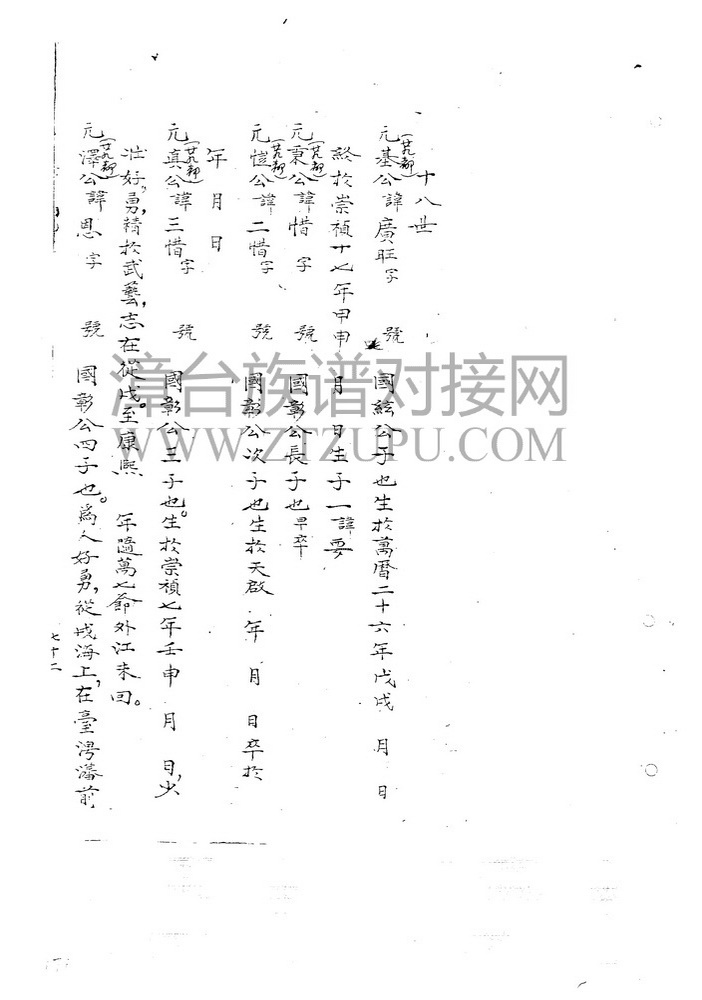 十八世
元基公(廿九都)諱廣旺字 號 國絃公子也生於萬曆二十六年戊戌 月 日
終於崇禎十七年甲申 月 日生子一諱要
元秉公(廿九都)諱惜 字 號 國彰公長子也早卒
元愷公(廿九都)諱二惜字 號 國彰公次子也生於天啟 年 月 日卒於
年 月 日
元真公(廿九都)諱三惜字 號 國彰公三子也。生於崇禎七年壬申 月 日,少
壯好勇,精於武藝,志在從戍。至康熙 年隨萬七爺外江未回。
元澤公(廿九都)諱恩字 號 國彰公四子也。為人好勇,從戍海上,在臺灣藩前
七十二
漳台族谱对接网
WWW.ZTZUPU.COM